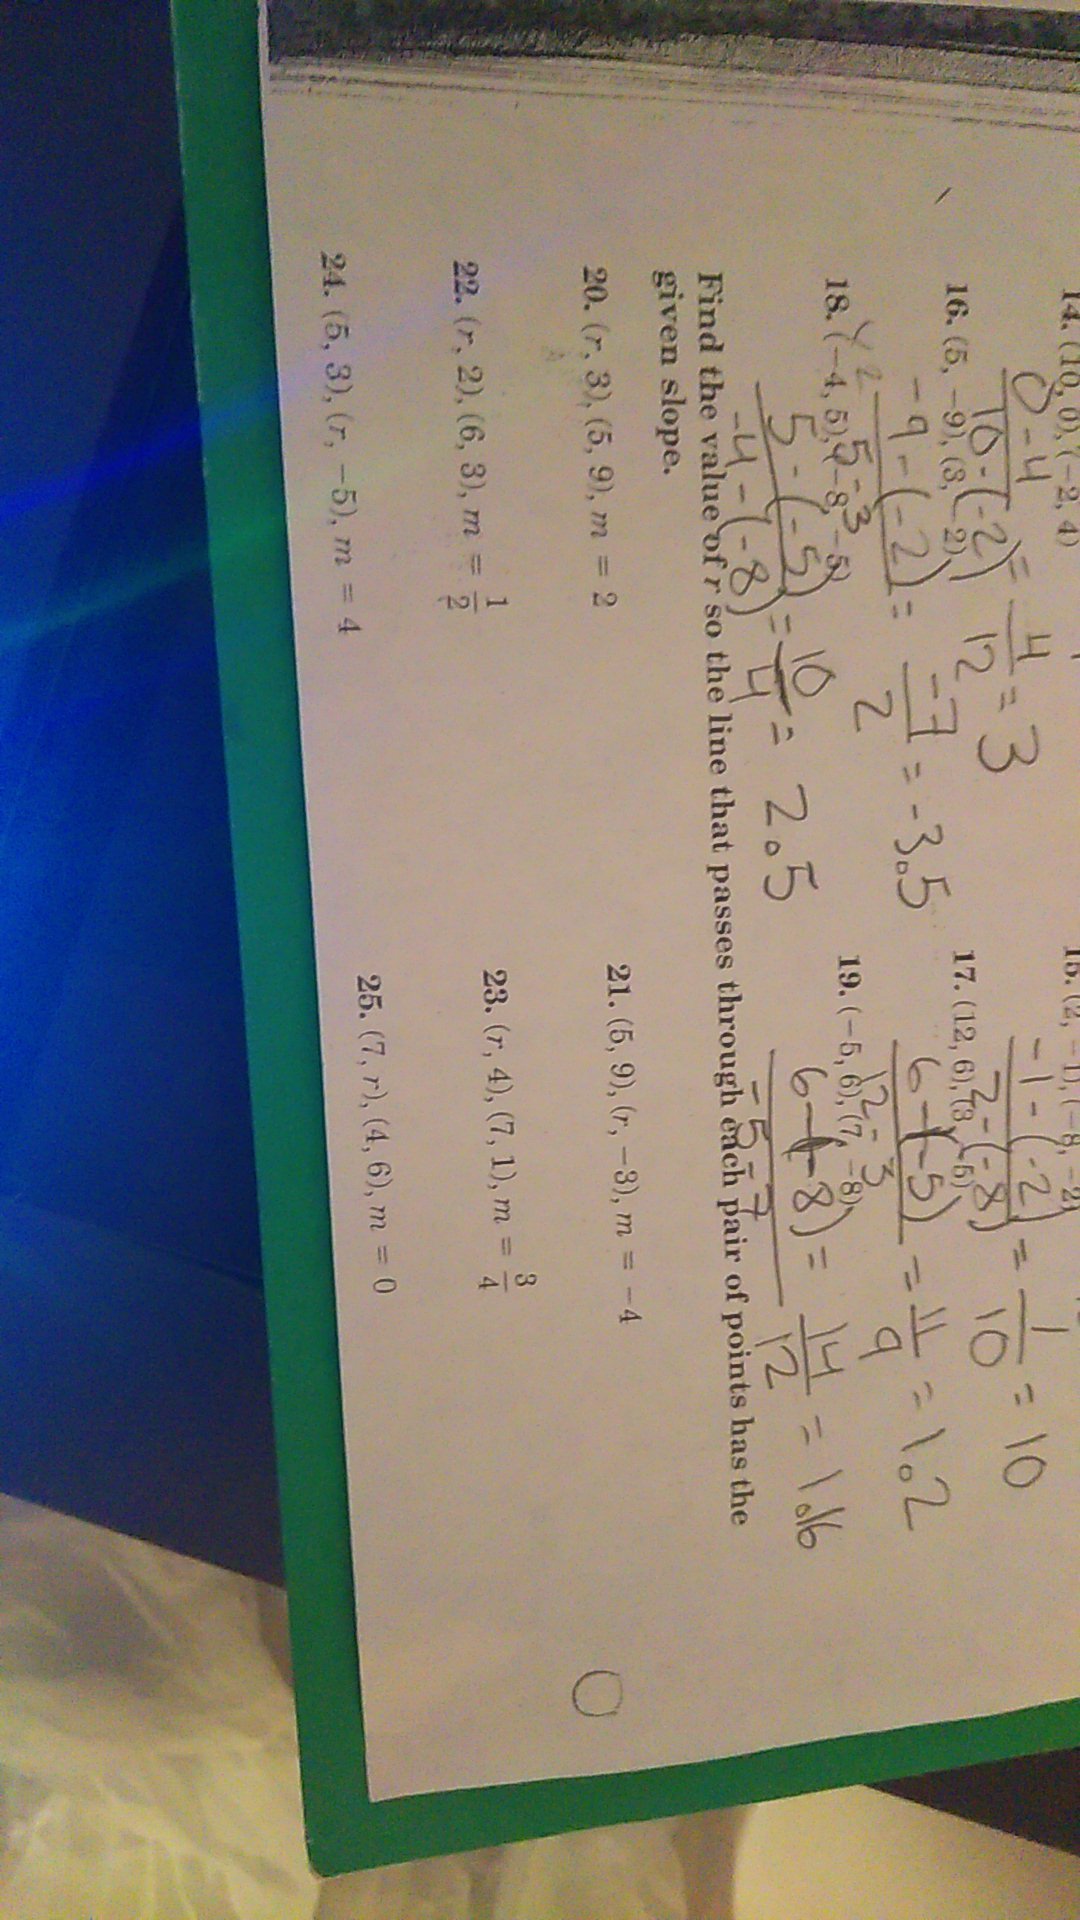 14. (10, 0), (-2, 4)
0-4
10-(-2) = 4/12 = 3
15. (2, -1), (-8, -2)
-1-(-2)
2-(-8) = 1/10 = 10
16. (5, -9), (3, -2)
-9-(-2)
5-3 = -7/2 = -3.5
17. (12, 6), (3, -5)
6-(-5)
12-3 = 11/9 = 1.2
18. (-4, 5), (-8, -5)
5-(-5)
-4-(-8) = 10/4 = 2.5
19. (-5, 6), (7, -8)
6-(-8)
-5-7 = 14/12 = 1.16
Find the value of r so the line that passes through each pair of points has the
given slope.
20. (r, 3), (5, 9), m = 2
21. (5, 9), (r, -3), m = -4
22. (r, 2), (6, 3), m = 1/2
23. (r, 4), (7, 1), m = 3/4
24. (5, 3), (r, -5), m = 4
25. (7, r), (4, 6), m = 0